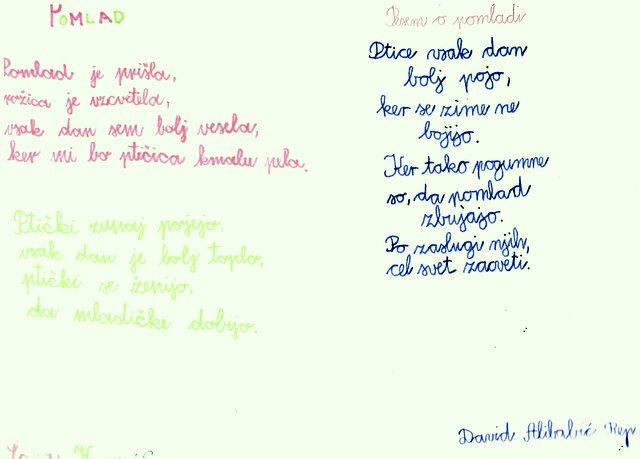 POMLAD
Pomlad je prišla,
rožica je vzcvetela,
vsak dan sem bolj vesela,
ker mi bo ptičica kmalu pela.
Ptički zunaj pojejo,
vsak dan je bolj toplo,
ptički se ženijo,
da mladičke dobijo.
Pesem o pomladi
Ptice vsak dan
bolj pojo,
ker se zime ne
bojijo.
Ker tako pogumne
so, da pomlad
zbujajo.
Po zaslugi njih,
cel svet zacveti.
David Alibabić